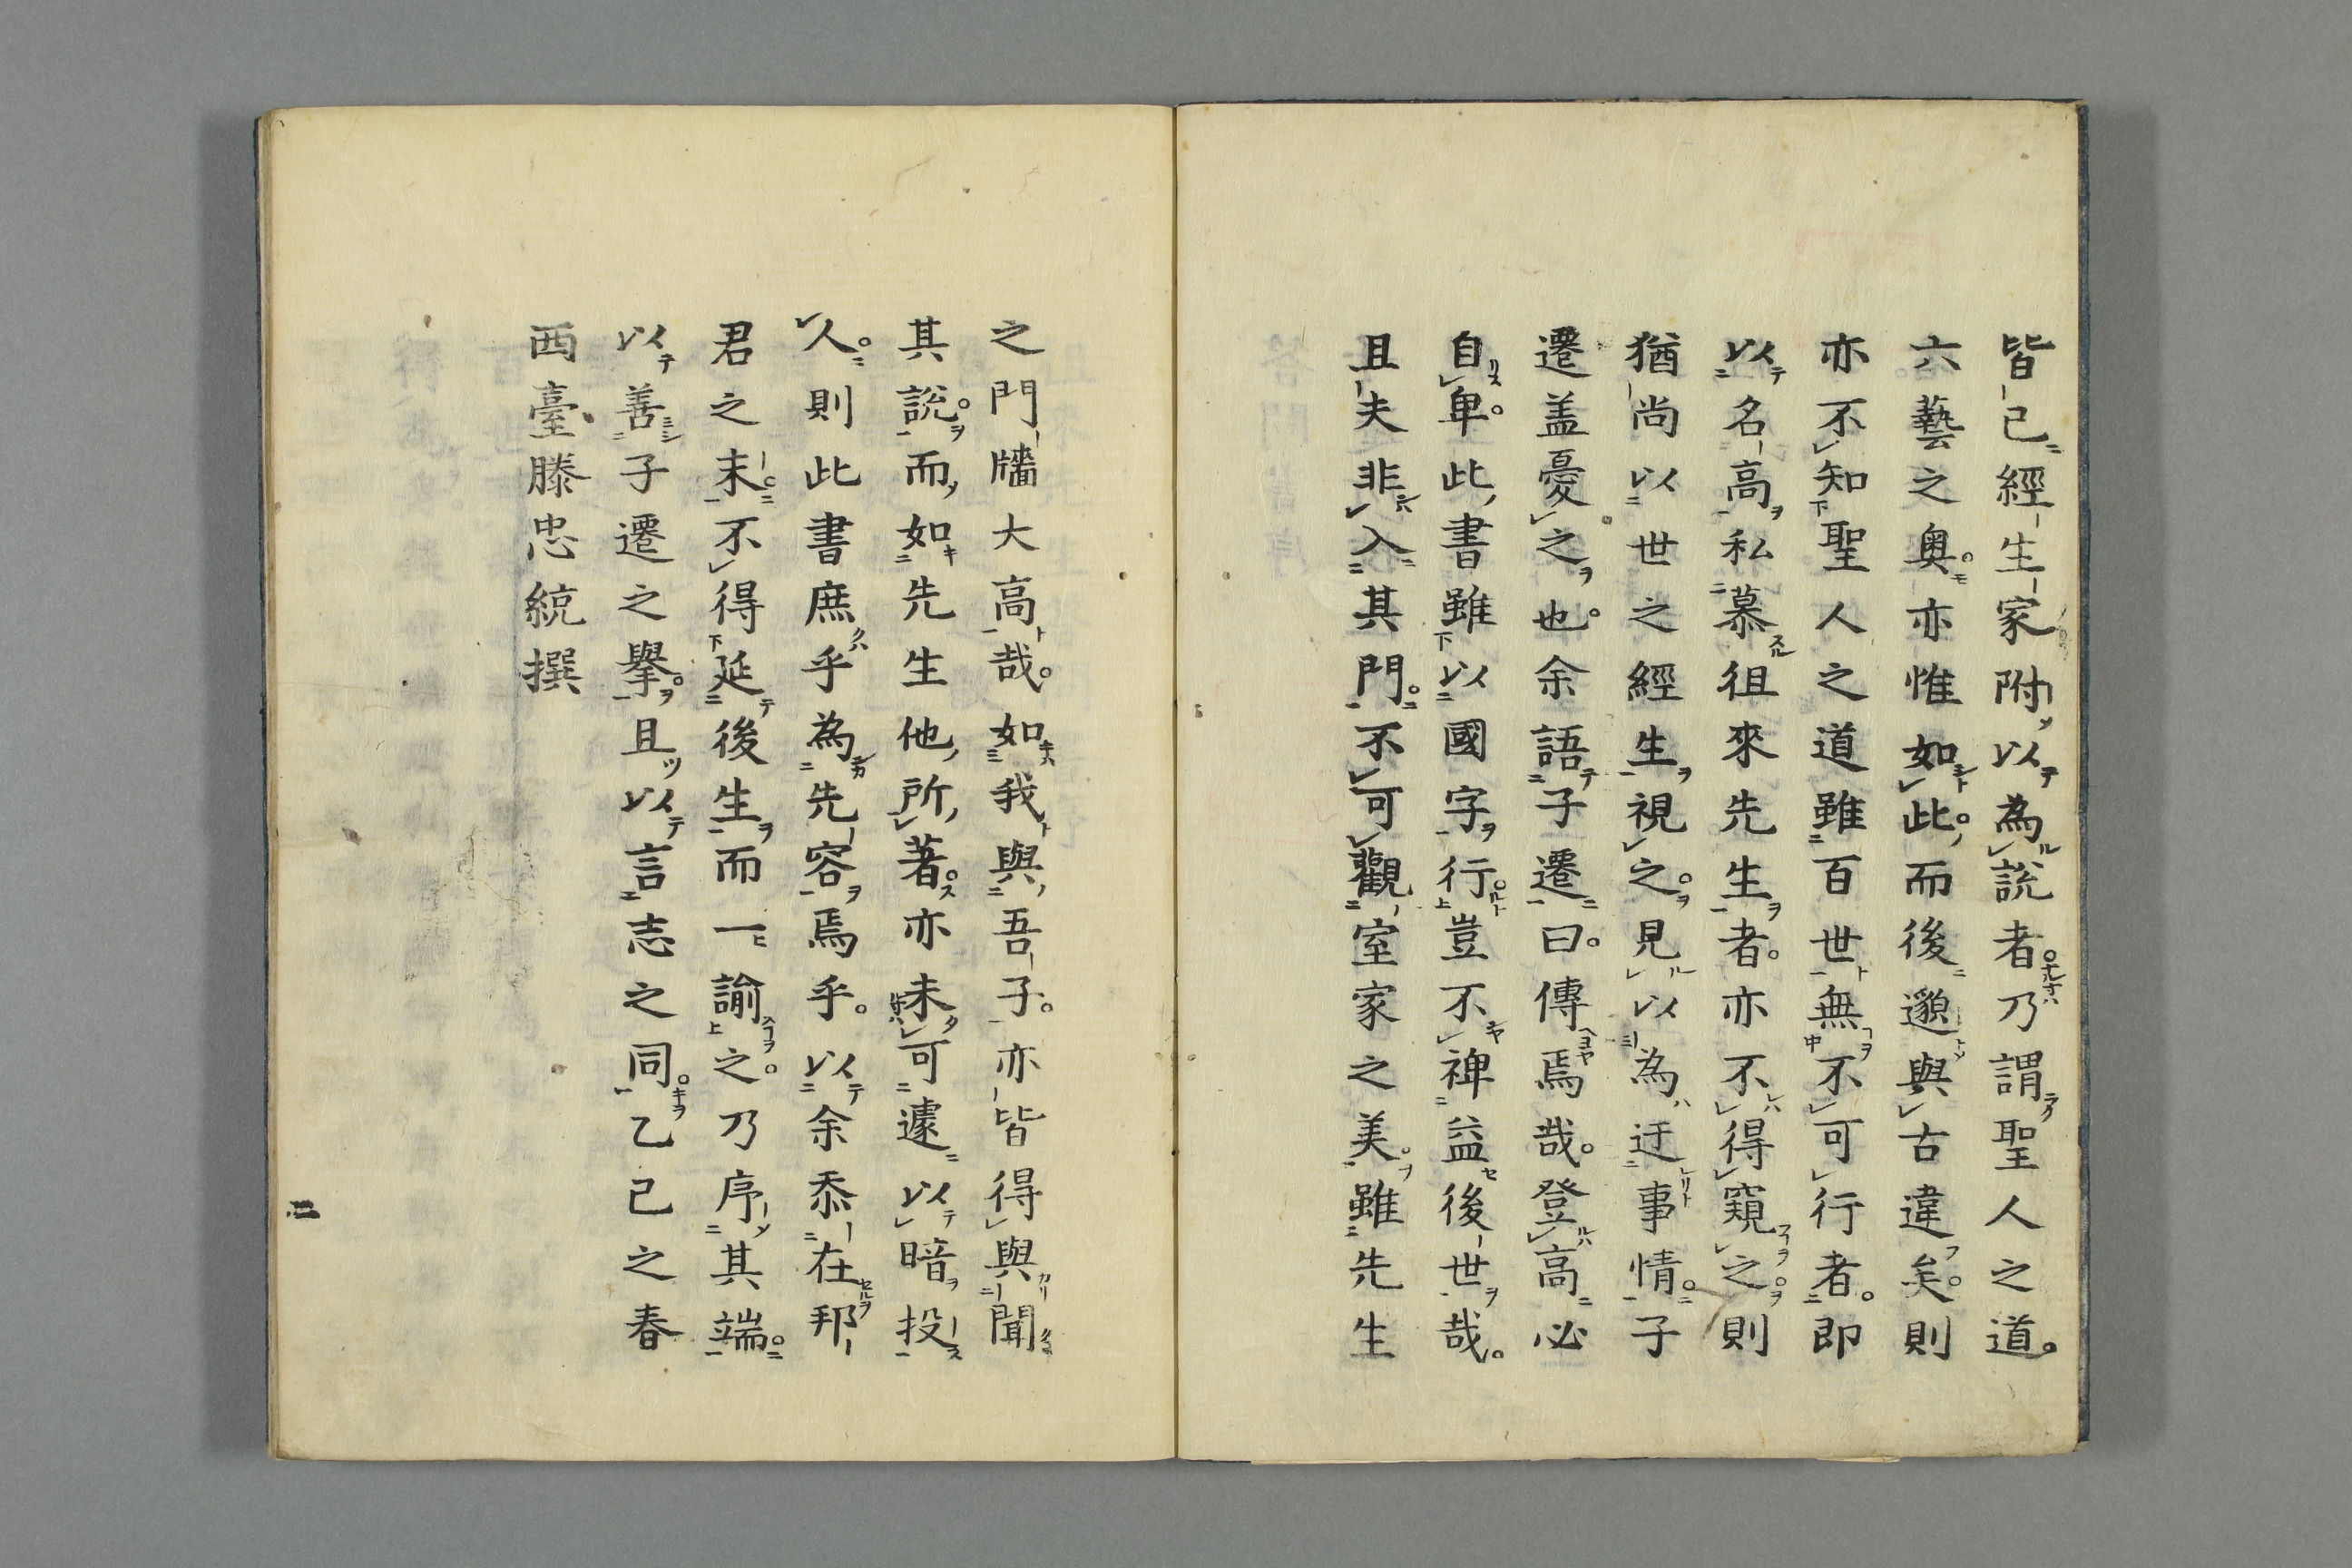 皆已經生家附以為說者乃謂聖人之道
六藝之奧亦惟如此而後邈與古違矣則
亦不知聖人之道雖百世無不可行者即
以名高私慕徂來先生者亦不得窺之則
猶尚以世之經生視之見以為迂事情子
遷盖憂之也余語子遷曰傳焉哉登高必
自卑此書雖以國字行豈不裨益後世哉
且夫非入其門不可觀室家之美雖先生
之門牆大高哉如我與吾子亦皆得與聞
其說而如先生他所著亦未可遽以暗投
人則此書庶乎為先容焉乎以余忝在邦
君之末不得延後生而一諭之乃序其端
以善子遷之擧且以言志之同乙已之春
西臺滕忠統撰
二